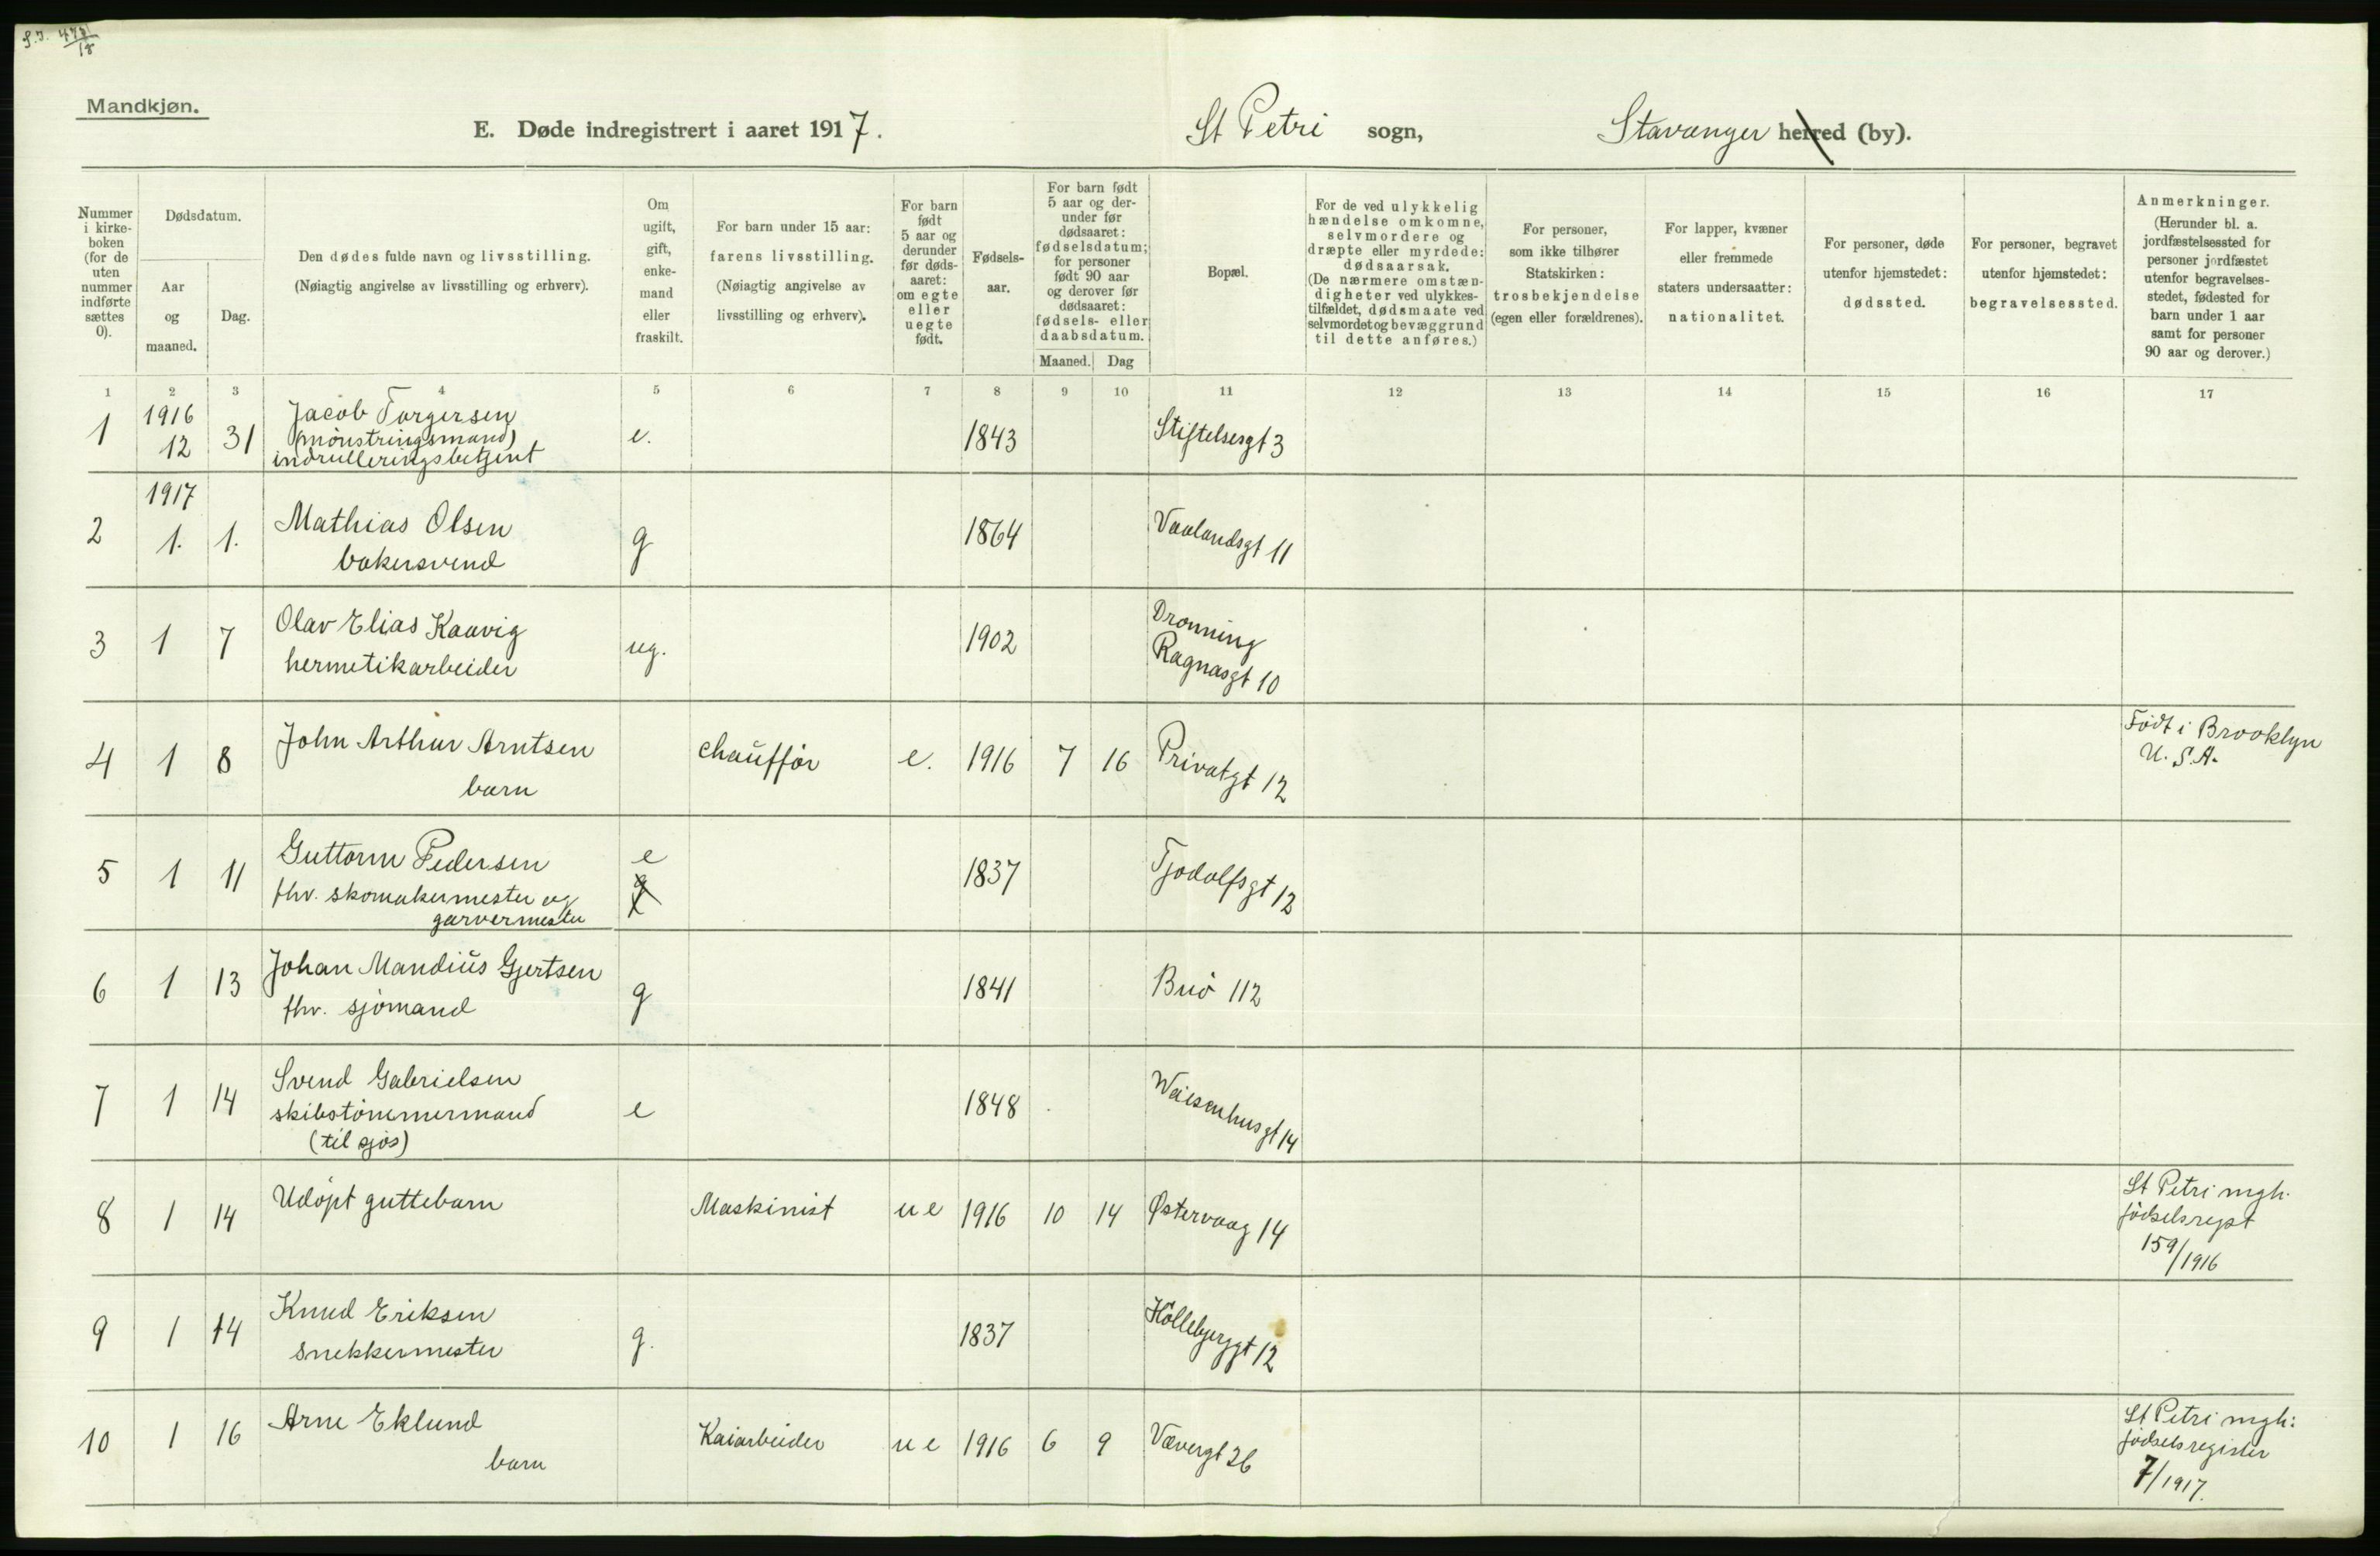 S.J. 478/18
Mandkjøn.
E. Døde indregistrert i aaret 1917.
St Petri sogn,
Stavanger herred (by).
Nummer i kirkeboken (for de uten nummer indførte sættes 0).
Dødsdatum.
Aar og maaned.
Dag.
Den dødes fulde navn og livsstilling.
(Nøiagtig angivelse av livsstilling og erhverv).
Om ugift, gift, enkemand eller fraskilt.
For barn under 15 aar: farens livsstilling.
(Nøiagtig angivelse av livsstilling og erhverv).
For barn født 5 aar og derunder før dødsaaret: om egte eller uegte født.
Fødselsaar.
For barn født 5 aar og derunder før dødsaaret: fødselsdatum; for personer født 90 aar og derover før dødsaaret: fødsels- eller daabsdatum.
Maaned. Dag
Bopæl.
For de ved ulykkelig hændelse omkomne, selvmordere og dræpte eller myrdede: dødsaarsak.
(De nærmere omstændigheter ved ulykkestilfældet, dødsmaate ved selvmordet og bevæggrund til dette anføres.)
For personer, som ikke tilhører Statskirken: trosbekjendelse (egen eller forældrenes).
For lapper, kvæner eller fremmede staters undersaatter: nationalitet.
For personer, døde utenfor hjemstedet: dødssted.
For personer, begravet utenfor hjemstedet: begravelsessted.
Anmerkninger.
(Herunder bl. a. jordfæstelsessted for personer jordfæstet utenfor begravelsesstedet, fødested for barn under 1 aar samt for personer 90 aar og derover.)
1 2 3 4 5 6 7 8 9 10 11 12 13 14 15 16 17
1 1916 12 31 Jacob Torgersen
(mønstringsmand)
indrulleringsbetjent e. 1843 Stiftelsesgt 3
2 1917 1. 1. Mathias Olsen
bakersvend g 1864 Vaalandsgt 11
3 1 7 Olav Elias Kaavig
hermetikarbeider ug. 1902 Dronning
Ragnasgt 10
4 1 8 John Arthur Arntsen
barn chauffør e. 1916 7 16 Privatgt 12 Født i Brooklyn
U.S.A.
5 1 11 Guttorm Pedersen
fhv. skomakermester og
garvermester e g 1837 Tjodolfsgt 12
6 1 13 Johan Mandius Gjertsen
fhv. sjømand g 1841 Buø 112
7 1 14 Svend Gabrielsen
skibstømmermand
(til sjøs) e 1848 Waisenhusgt 14
8 1 14 Udøpt guttebarn Maskinist u e 1916 10 14 Østervaag 14 St Petri mgh.
fødselsregst
159/1916
9 1 14 Knud Eriksen
snekkermester g. 1837 Høllebjerggt 12
10 1 16 Arne Eklund
barn Kaiarbeider u e 1916 6 9 Vævergt 26 St Petri mgh:
fødselsregister
7/1917.